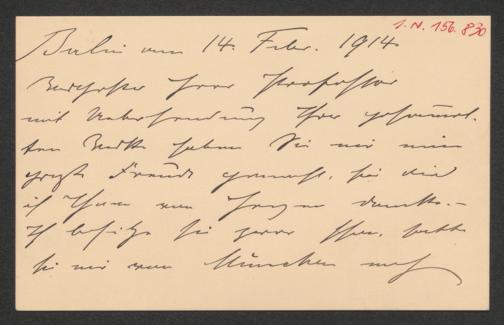 I. N. 156.830
Berlin am 14. Febr. 1914.
Verehrter Herr Professor
mit Uebersendung Ihrer gesammel-
ten Werke haben Sie mir eine
große Freude gemacht, für die
ich Ihnen von Herzen danke. –
Ich besitze sie zwar schon, hatte
sie mir von München noch